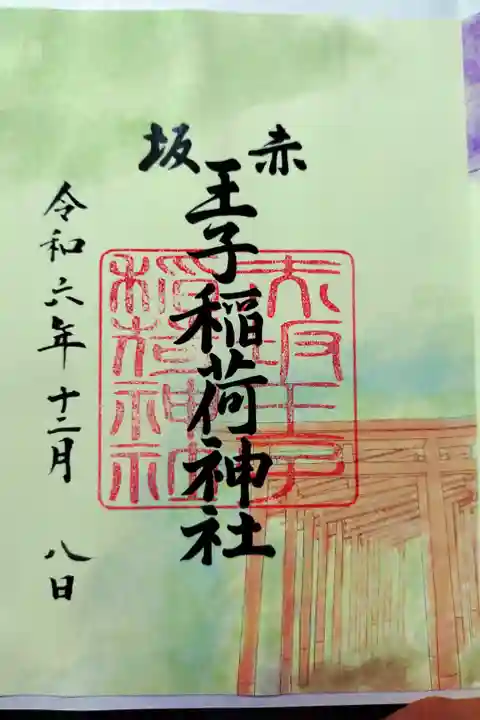 赤坂
王子稲荷神社
令和六年十二月八日
赤坂王子
稲荷神社